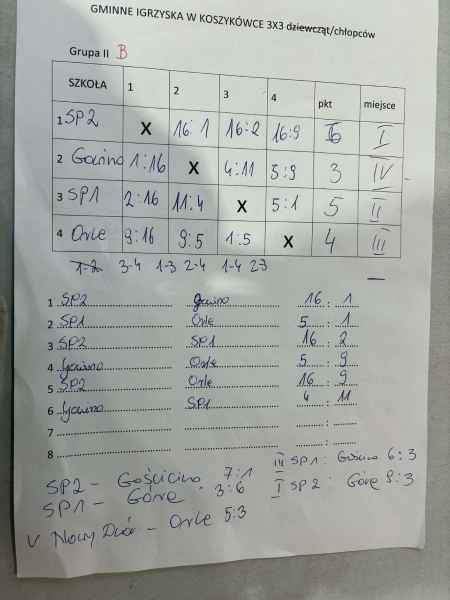 GMINNE IGRZYSKA W KOSZYKÓWCE 3X3 dziewcząt/chłopców
Grupa II B
SZKOŁA 1 2 3 4 pkt miejsce
1 SP2 X 16:1 16:2 16:9 6 I
2 Gowino 1:16 X 4:11 5:9 3 IV
3 SP1 2:16 11:4 X 5:1 5 II
4 Orle 9:16 9:5 1:5 X 4 III
1-2 3-4 1-3 2-4 1-4 23
1 SP2 gowino 16 : 1
2 SP1 Orle 5 : 1
3 SP2 SP1 16 : 2
4 Gowino Orle 5 : 9
5 SP2 Orle 16 : 9
6 Gowino SP1 4 : 11
7 :
8 :
SP2 - Gościcino 7:1
SP1 - Górę 3:6
III SP1 : Gościcino 6:3
I SP2 : Górę 9:3
V Nowy Dwór - Orle 5:3